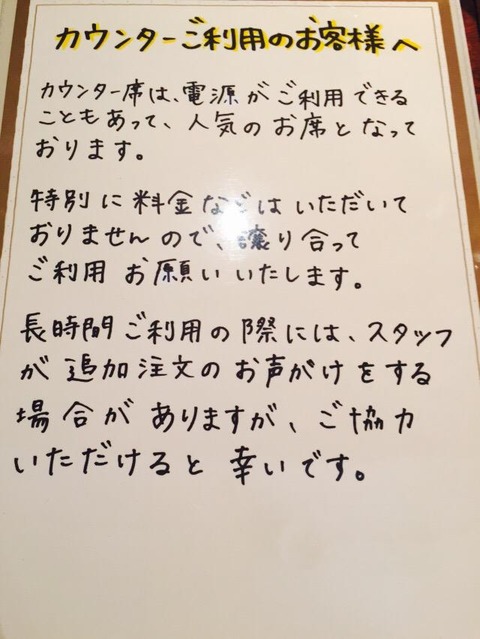 カウンターご利用のお客様へ
カウンター席は、電源がご利用できる
こともあって、人気のお席となって
おります。
特別に料金などはいただいて
おりませんので、譲り合って
ご利用お願いいたします。
長時間ご利用の際には、スタッフ
が追加注文のお声がけをする
場合がありますが、ご協力
いただけると幸いです。